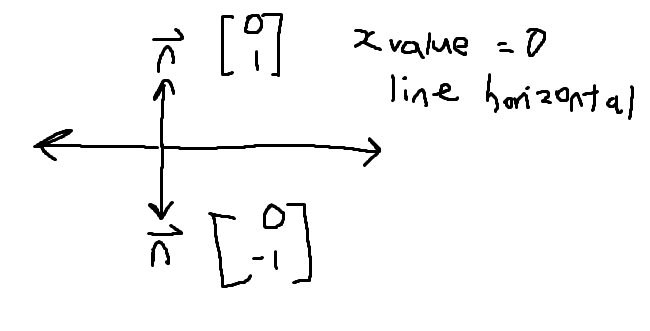 n⃗ [0 1]
x value = 0
line horizontal
n⃗ [0 -1]